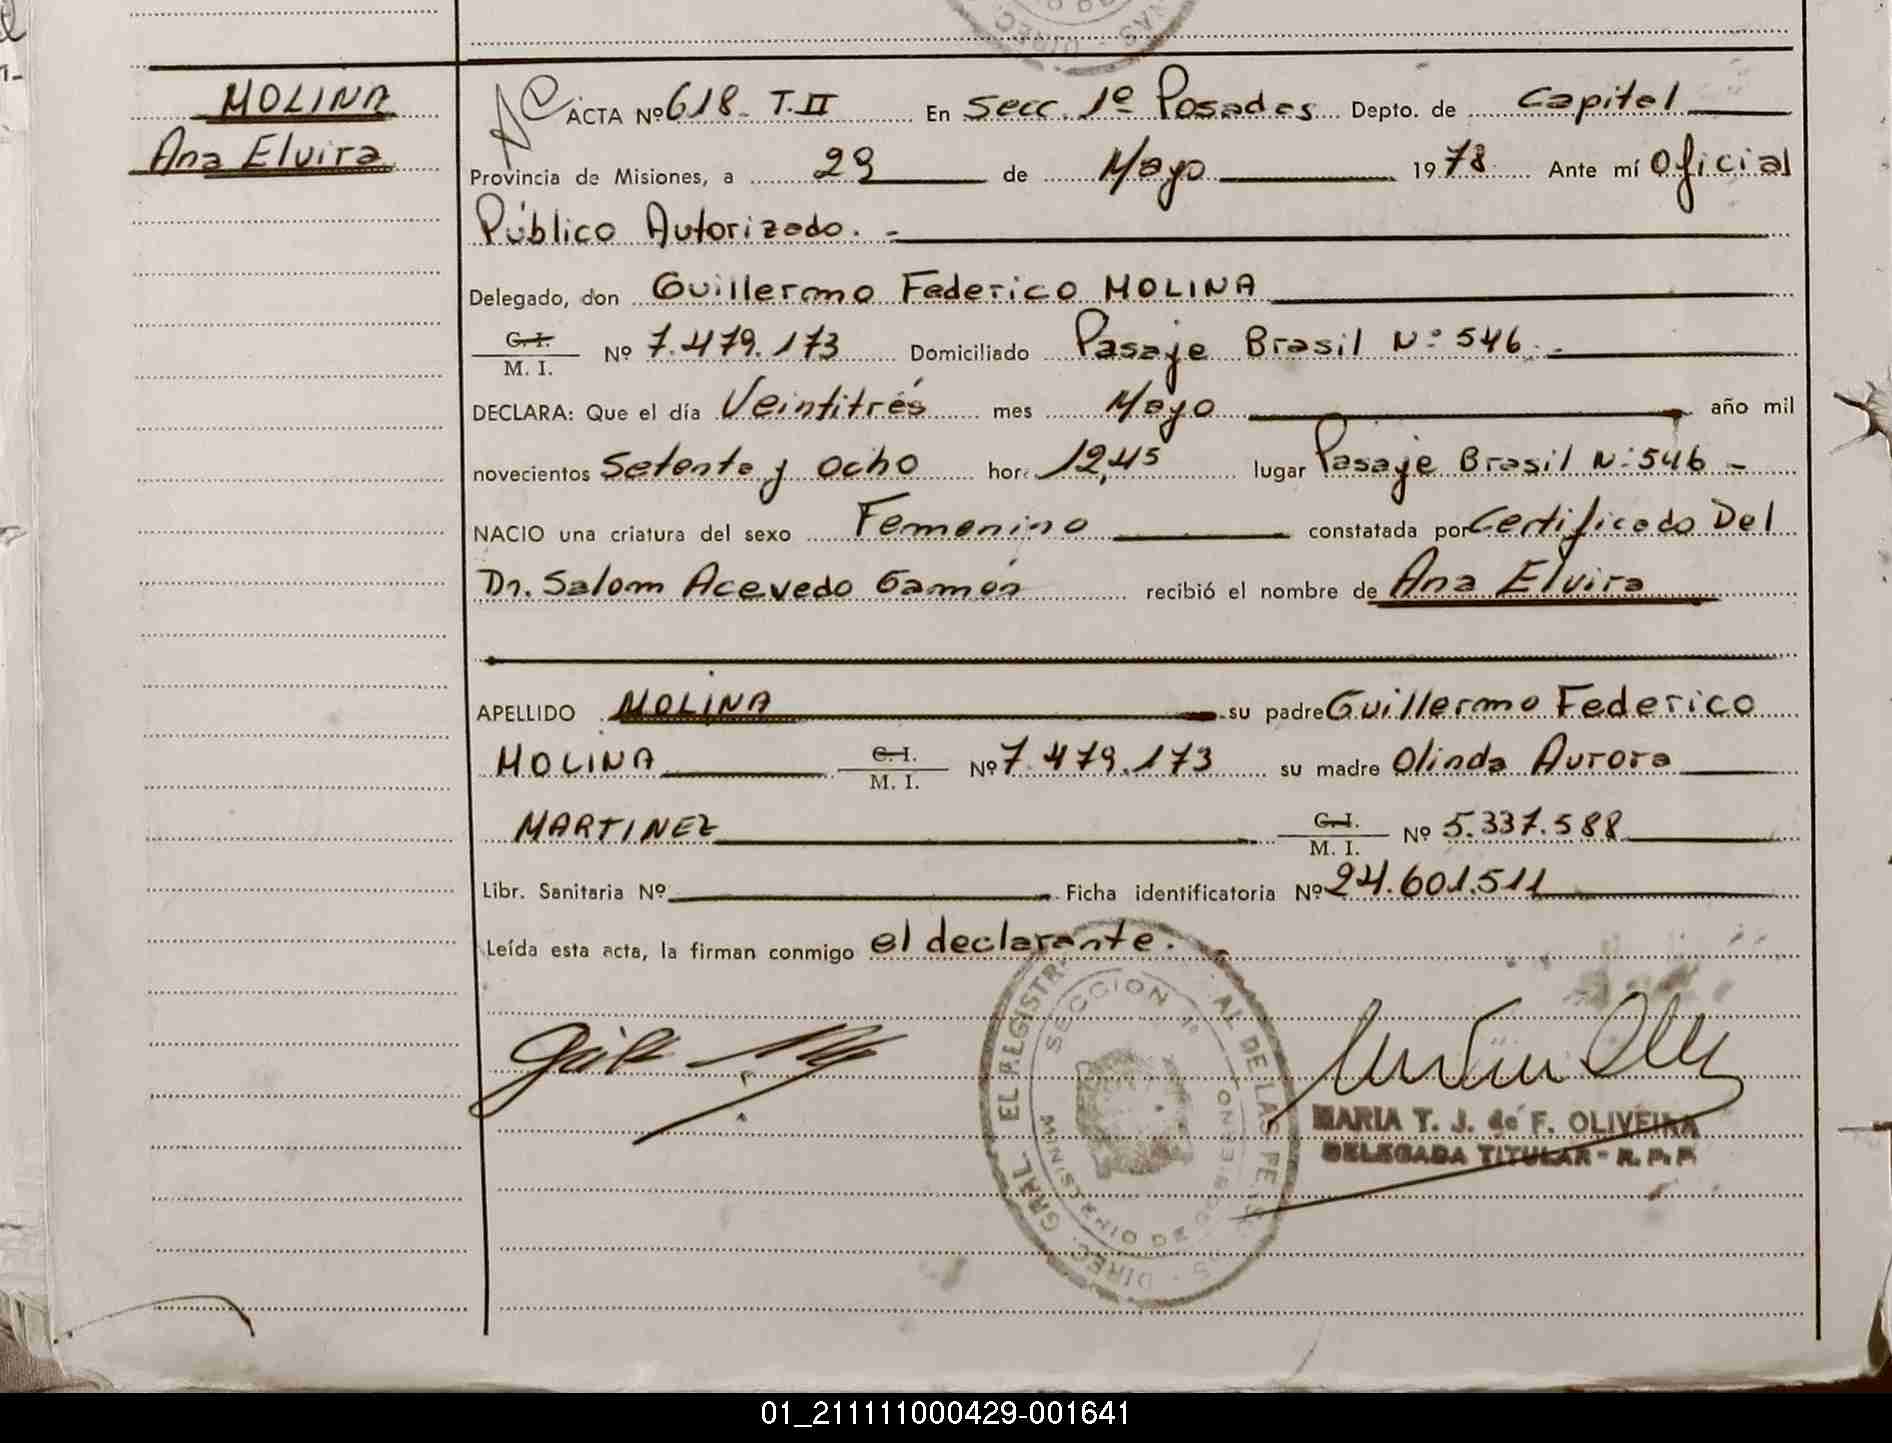 MOLINA
Ana Elvira
ACTA Nº 618. T.II En Secc. 1º Posadas Depto. de Capital
Provincia de Misiones, a 29 de Mayo 1978. Ante mí Oficial
Público Autorizado. -
Delegado, don Guillermo Federico MOLINA
C. I.
M. I. Nº 7.479.173 Domiciliado Pasaje Brasil Nº 546. -
DECLARA: Que el día Veintitrés mes Mayo año mil
novecientos Setenta y ocho hora 12,45 lugar Pasaje Brasil Nº 546 -
NACIO una criatura del sexo Femenino constatada por Certificado Del
Dr. Salom Acevedo Gamón recibió el nombre de Ana Elvira
APELLIDO MOLINA su padre Guillermo Federico
MOLINA C. I. M. I. Nº 7.479.173 su madre Olinda Aurora
MARTINEZ C. I. M. I. Nº 5.337.588
Libr. Sanitaria Nº Ficha identificatoria Nº 24.601.511
Leída esta acta, la firman conmigo el declarante. -
SECCION 1º
MARIA T. J. de F. OLIVEIRA
DELEGADA TITULAR - R. P. P.
01_211111000429-001641